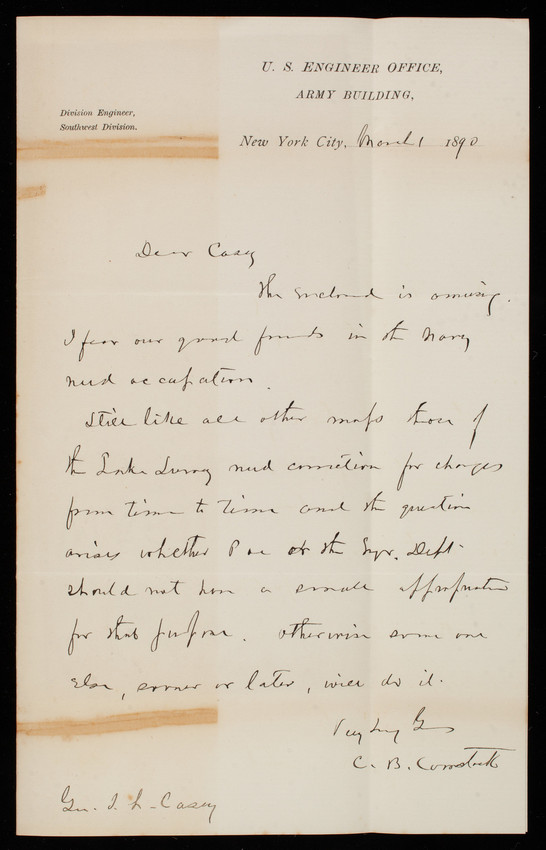 U. S. ENGINEER OFFICE,
ARMY BUILDING,
Division Engineer,
Southwest Division.
New York City, March 1 1890
Dear Casey
The enclosed is amusing.
I fear our good friends in the Navy
need occupation.
Still like all other maps those of
the Lake Survey need correction for changes
from time to time and the question
arises whether the Engr. Dept.
should not have a small appropriation
for that purpose. Otherwise some one
else, sooner or later, will do it.
Very truly Yrs
C. B. Comstock
Gen. T. L. Casey